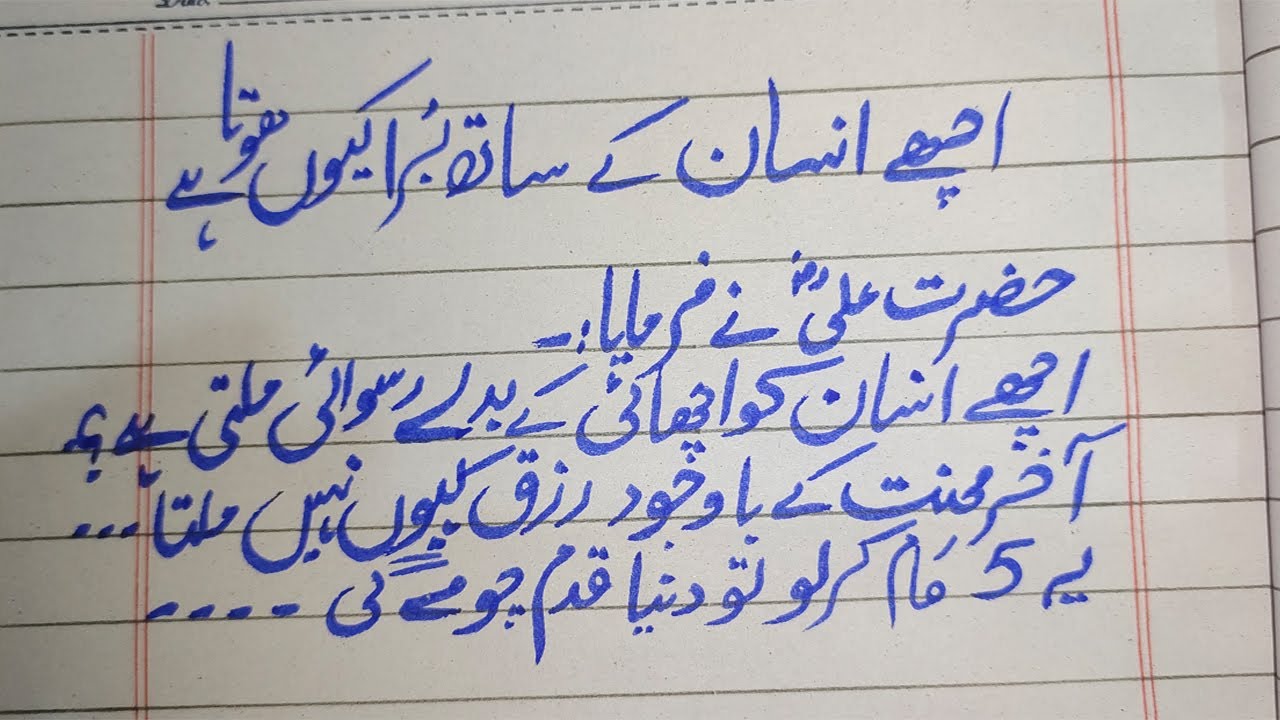 اچھے انسان کے ساتھ بُرا کیوں ہوتا ہے
حضرت علیؓ نے فرمایا:۔
اچھے انسان کو اچھائی کے بدلے رسوائی ملتی ہے؟
آخر محنت کے باوجود رزق کیوں نہیں ملتا۔۔۔
یہ 5 کام کرلو تو دنیا قدم چومے گی ۔۔۔۔